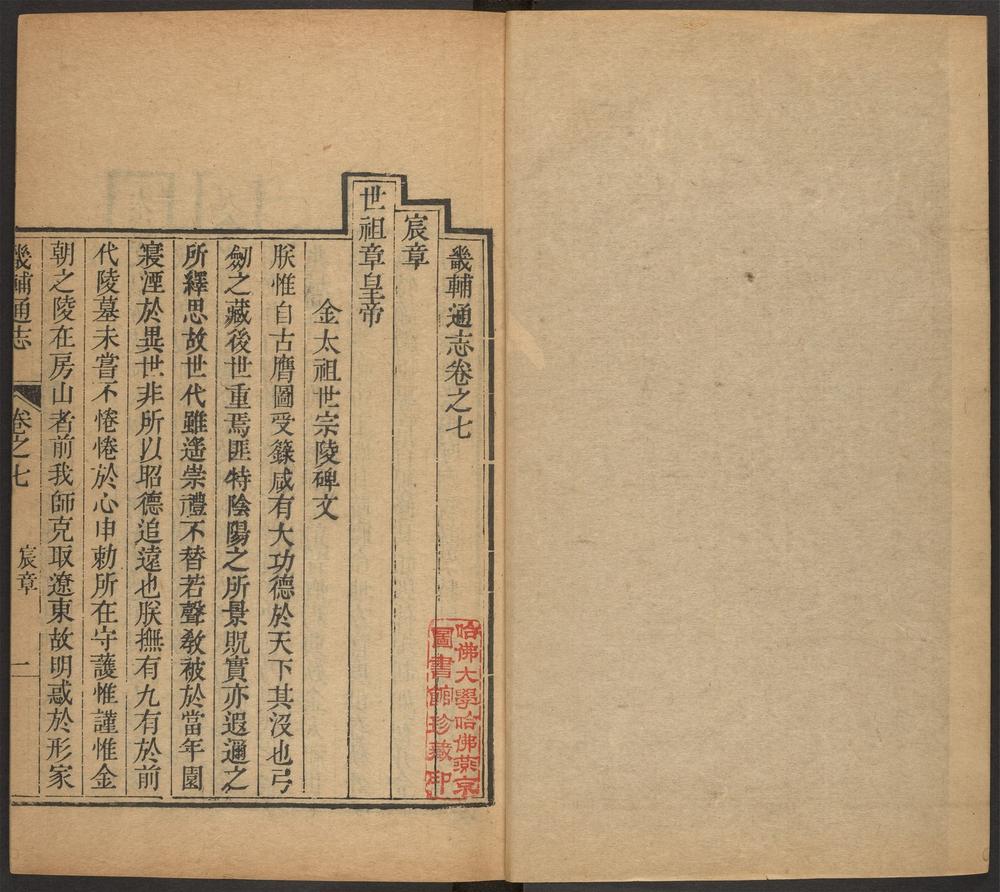 畿輔通志卷之七
宸章
世祖章皇帝
金太祖世宗陵碑文
朕惟自古膺圖受籙咸有大功德於天下其沒也弓
劒之藏後世重焉匪特陰陽之所景貺實亦遐邇之
所繹思故世代雖遙崇禮不替若聲敎被於當年園
寢湮於異世非所以昭德追遠也朕撫有九有於前
代陵墓未嘗不惓惓於心申勅所在守護惟謹惟金
朝之陵在房山者前我師克取遼東故明惑於形家
畿輔通志
卷之七
宸章
一
哈佛大學哈佛燕京
圖書館珍藏印